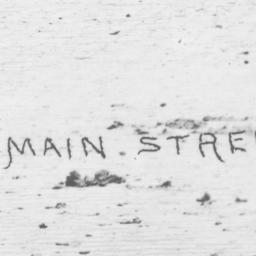 MAIN STRE